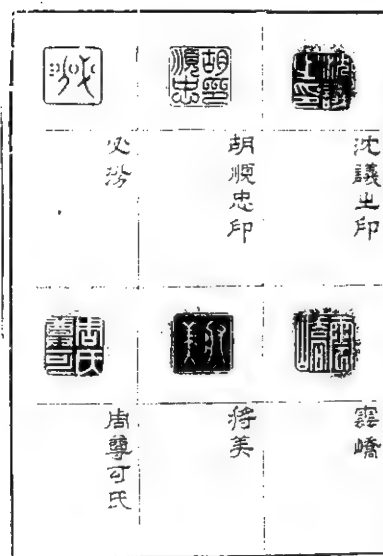 沈議之印
胡順忠印
必汾
雲嶠
將美
周尊可氏